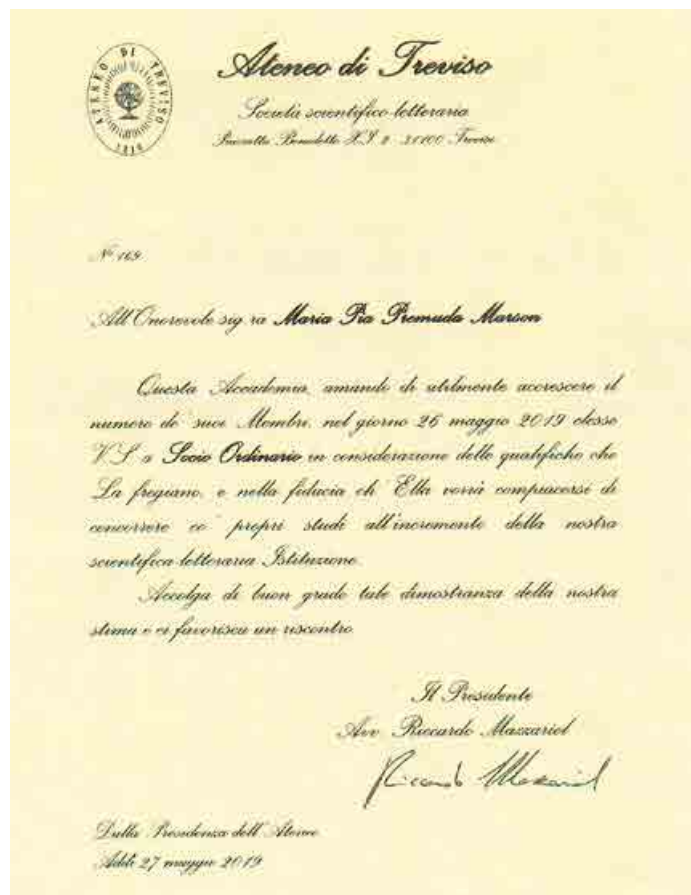 ATENEO DI TREVISO
1810
Ateneo di Treviso
Società scientifico-letteraria
Piazzetta Benedetto XI 2 - 31100 Treviso
N° 169
All'Onorevole sig.ra Maria Pia Premuda Marson
Questa Accademia, amando di utilmente accrescere il
numero de' suoi Membri, nel giorno 26 maggio 2019 elesse
V.S. a Socio Ordinario in considerazione delle qualifiche che
La fregiano, e nella fiducia ch' Ella vorrà compiacersi di
concorrere co' propri studi all'incremento della nostra
scientifica-letteraria Istituzione.
Accolga di buon grado tale dimostranza della nostra
stima e ci favorisca un riscontro.
Il Presidente
Avv. Riccardo Mazzariol
Riccardo Mazzariol
Dalla Presidenza dell'Ateneo
Addì 27 maggio 2019